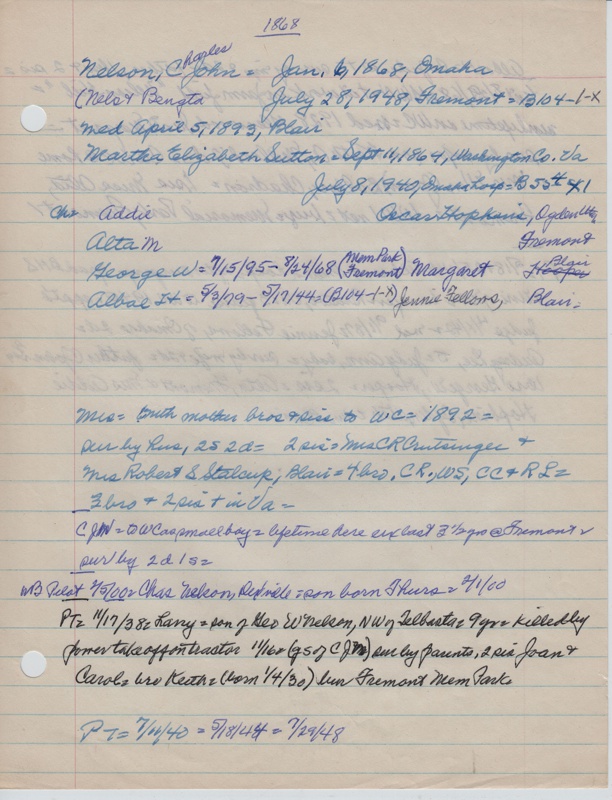 1868
Nelson, Charles John = Jan. 6, 1868, Omaha
(Nels & Bengta July 28, 1948, Fremont = B104-1-X
med April 5, 1893, Blair
Martha Elizabeth Sutton = Sept 11, 1864, Washington Co. Va
July 8, 1940, Omaha hosp = B55 X1
Ch = Addie Oscar Hopkins, Ogden Utah
Alta M Fremont
George W = 7/15/95 - 8/24/68 (Mem Park Fremont) Margaret Hooper Blair
Albae H = 5/3/79 - 5/17/44 = (B104-1-X) Jennie Fellows, Blair =
Mrs = with mother bros & sis to WC = 1892 =
sur by hus, 2s 2d = 2 sis = Mrs CR Crutsinger &
Mrs Robert S Stalcup, Blair = 4 bro, CR, WS, CC & RL =
3 bro & 2 sis + in Va =
CJN = to WC as small boy = lifetime here ex last 3 ½ yrs @ Fremont =
sur by 2d 1s =
Pilot 2/5/00 = Chas Nelson, = son born Thurs = 2/1/00
PT = 11/17/38 = Larry = son of Geo W Nelson, NW of Telbasta = 9 yr = killed by
power takeoff on tractor 11/16 = (gs of CJN) sur by parents, 2 sis Joan &
Carol = bro Keith = (born 1/4/30) bur Fremont Mem Park =
PT = 7/11/40 = 5/18/44 = 7/29/48